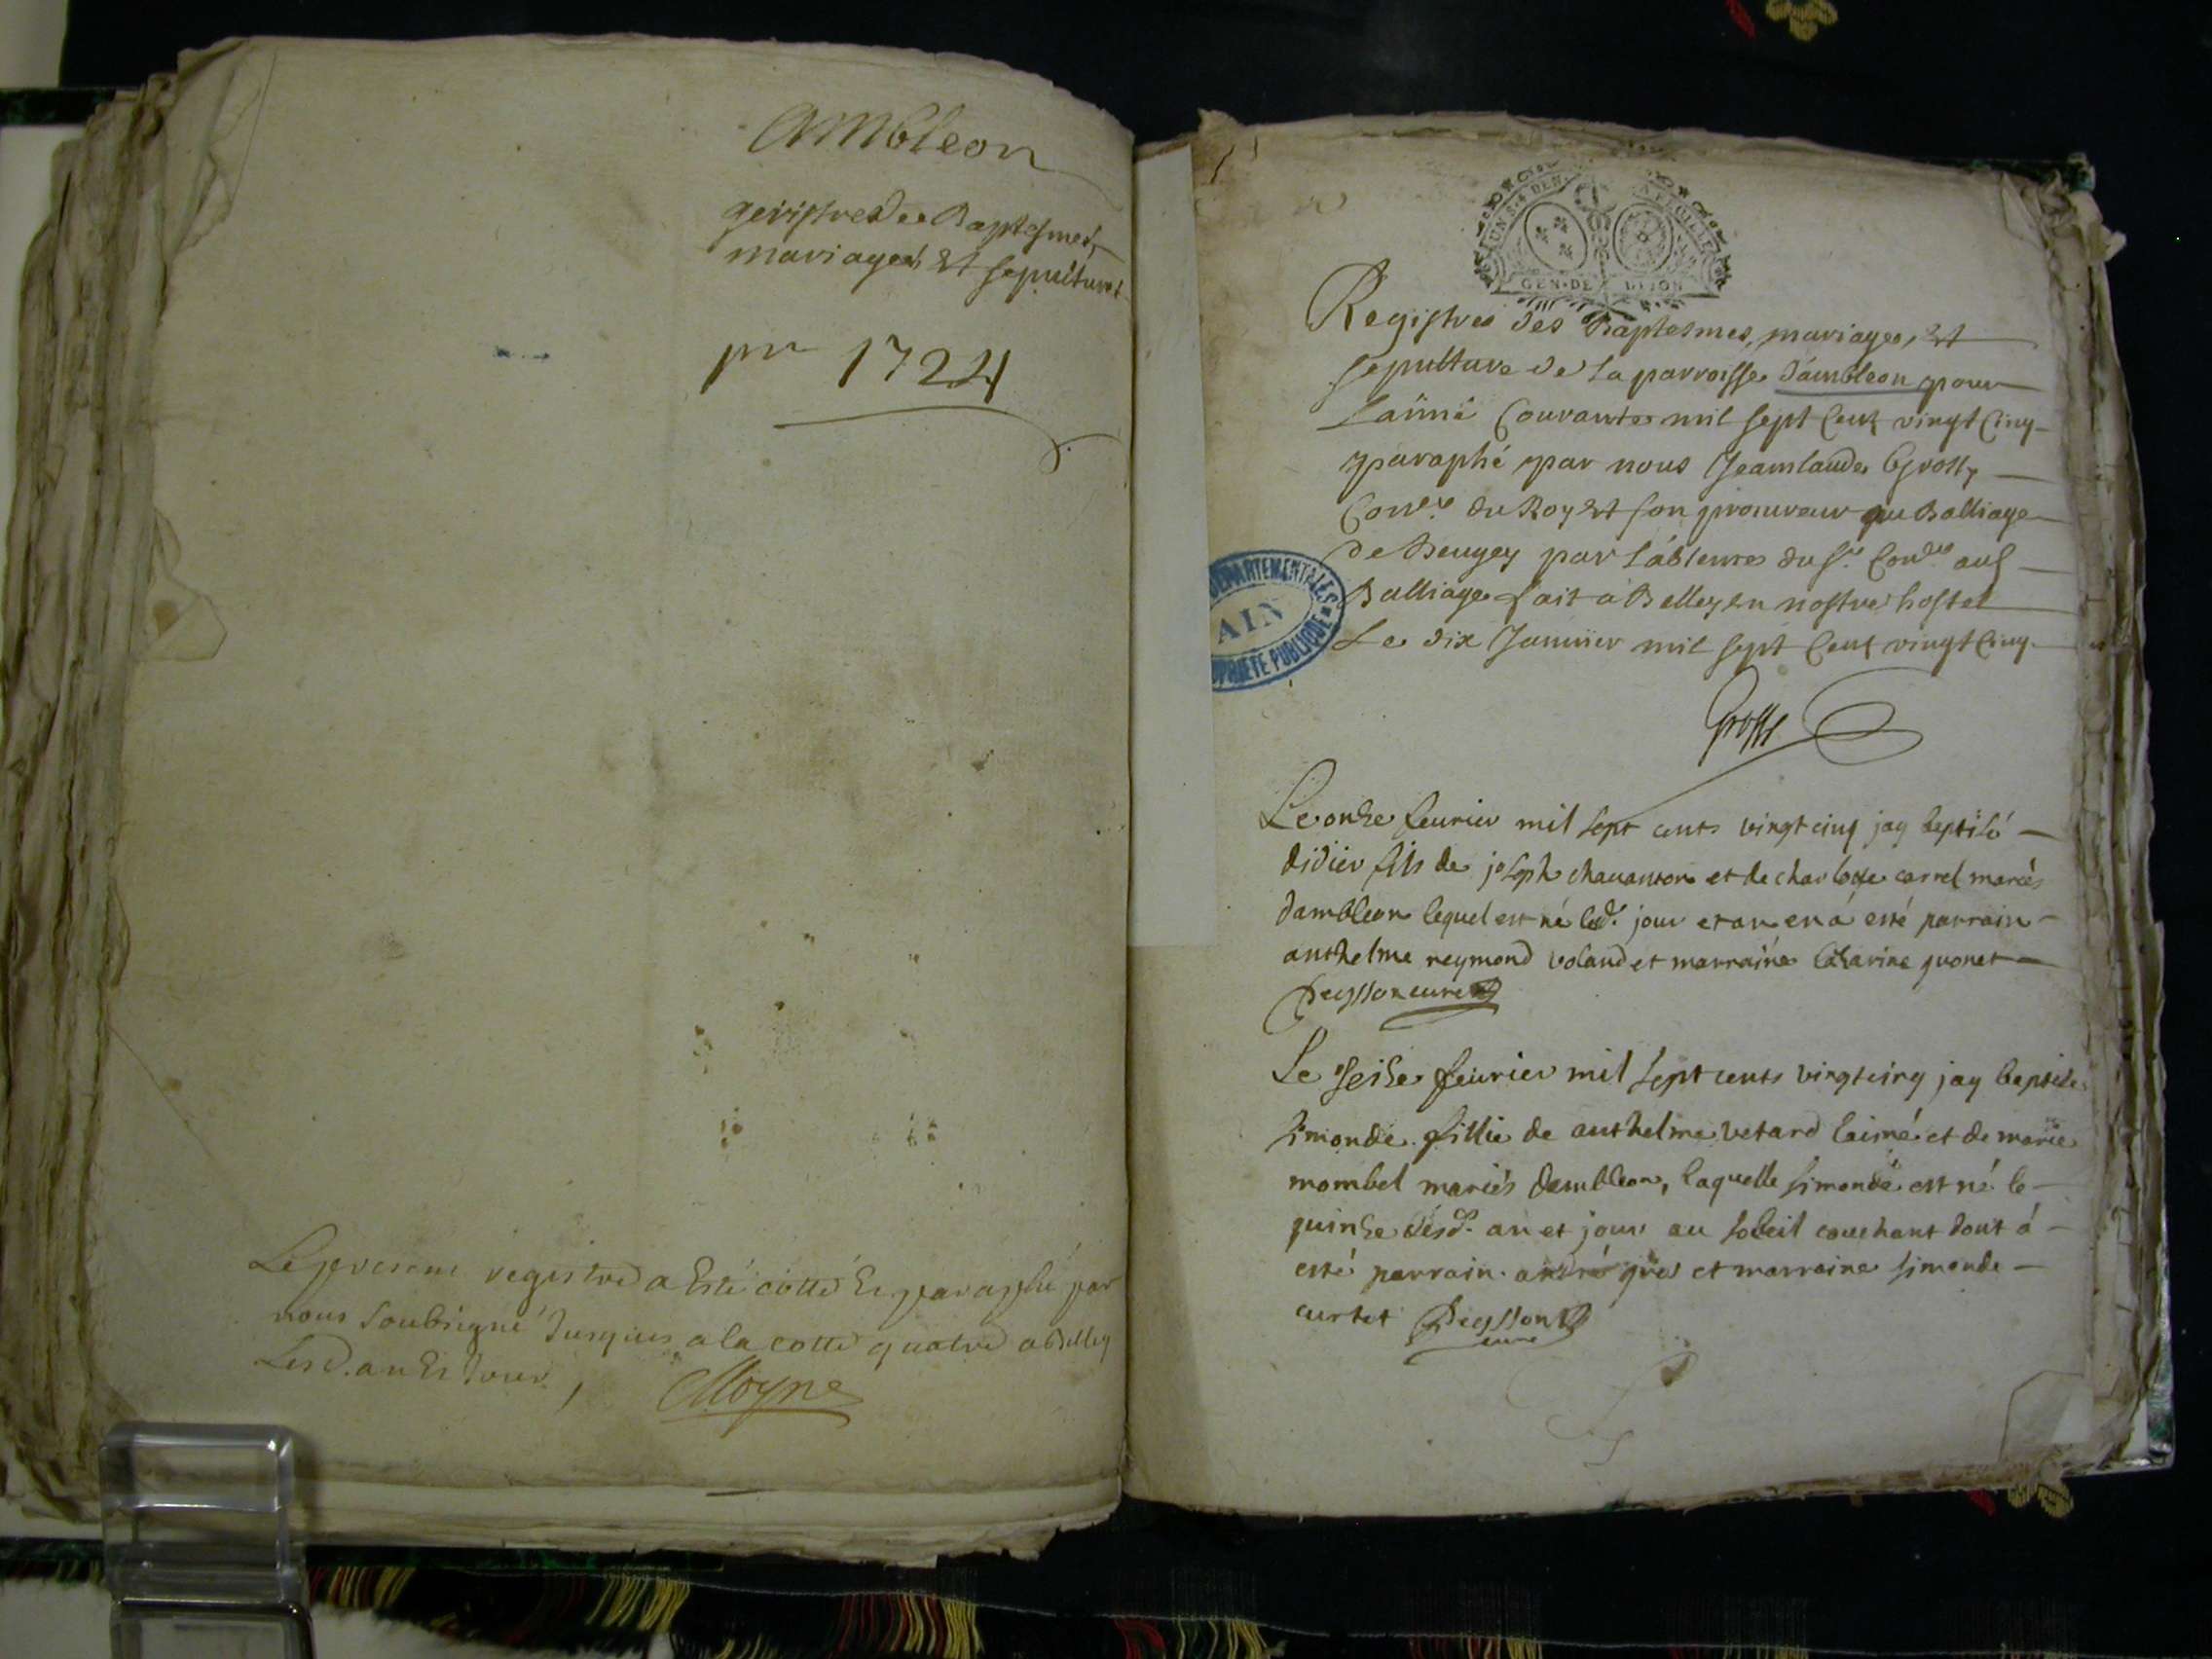 Ambleon
registres de Baptesmes,
mariages et sepultures
pr 1724
Le present registre a esté cotté et paraphé par
nous soubsigné jusques a la cotte quatre a Belley
lesd. an et jour,
Moyne
GEN·DE DIJON
Registres des Baptesmes, mariages, et
sepulture de la parroisse d'ambleon pour
l'année courante mil sept cent vingt cinq
paraphé par nous Jeanclaude Grossy
Conr. du Roy et son procureur au Balliage
de Beugey par l'absence du sr. aud
Balliage fait a Belley en nostre hostel
Le dix Janvier mil sept cent vingt cinq
DEPARTEMENTALES
AIN
PROPRIETE PUBLIQUE
Grossy
Le onze feurier mil sept cents vingt cinq jay baptisé
didier fils de joseph chauanton et de charlotte carrel mariés
dambleon lequel est né led. jour et an en á esté parrain
anthelme reymond voland et marraine catarine quonet
Peysson curé
Le seize feurier mil sept cents vingt cinq jay baptisé
simonde fillie de anthelme vetard lainé et de marie
mombel mariés dambleon, laquelle simonde est né le
quinze desd. an et jour au soleil couchant dont á
esté parrain andré gros et marraine simonde
curtet Peysson
curé